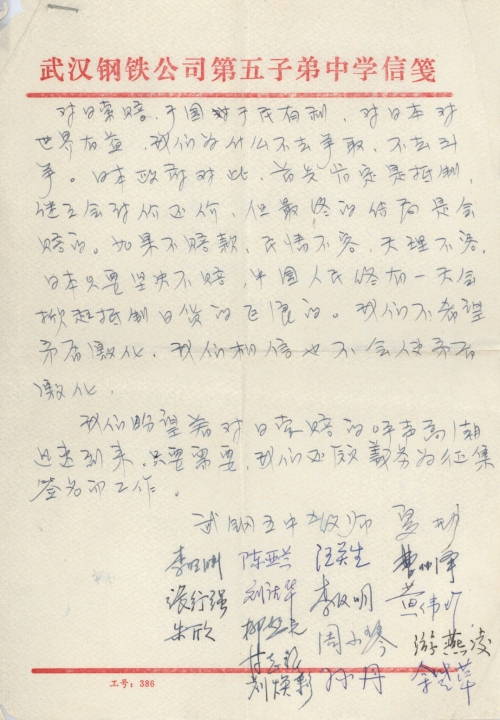 武汉钢铁公司第五子弟中学信笺
对日索赔，于国于民有利，对日本对
世界有益，我们为什么不去争取，不去斗
争。日本政府对此，首先肯定是抵制，
继而会讨价还价，但最终的结局是会
赔的。如果不赔款，民情不容，天理不容，
日本只要坚决不赔，中国人民终有一天会
掀起抵制日货的巨浪的。我们不希望
矛盾激化，我们相信也不会使矛盾
激化，
我们盼望着对日索赔的呼声高潮
迅速到来，只要需要，我们还愿义务为征集
签名而工作。
武钢五中教师 夏
李 陈亚兰 汪英生 曹
张行强 刘 华 李汉明 黄伟
朱欣 柳 周小琴 游燕凌
刘焕彩 孙丹 余 萍
工号：386